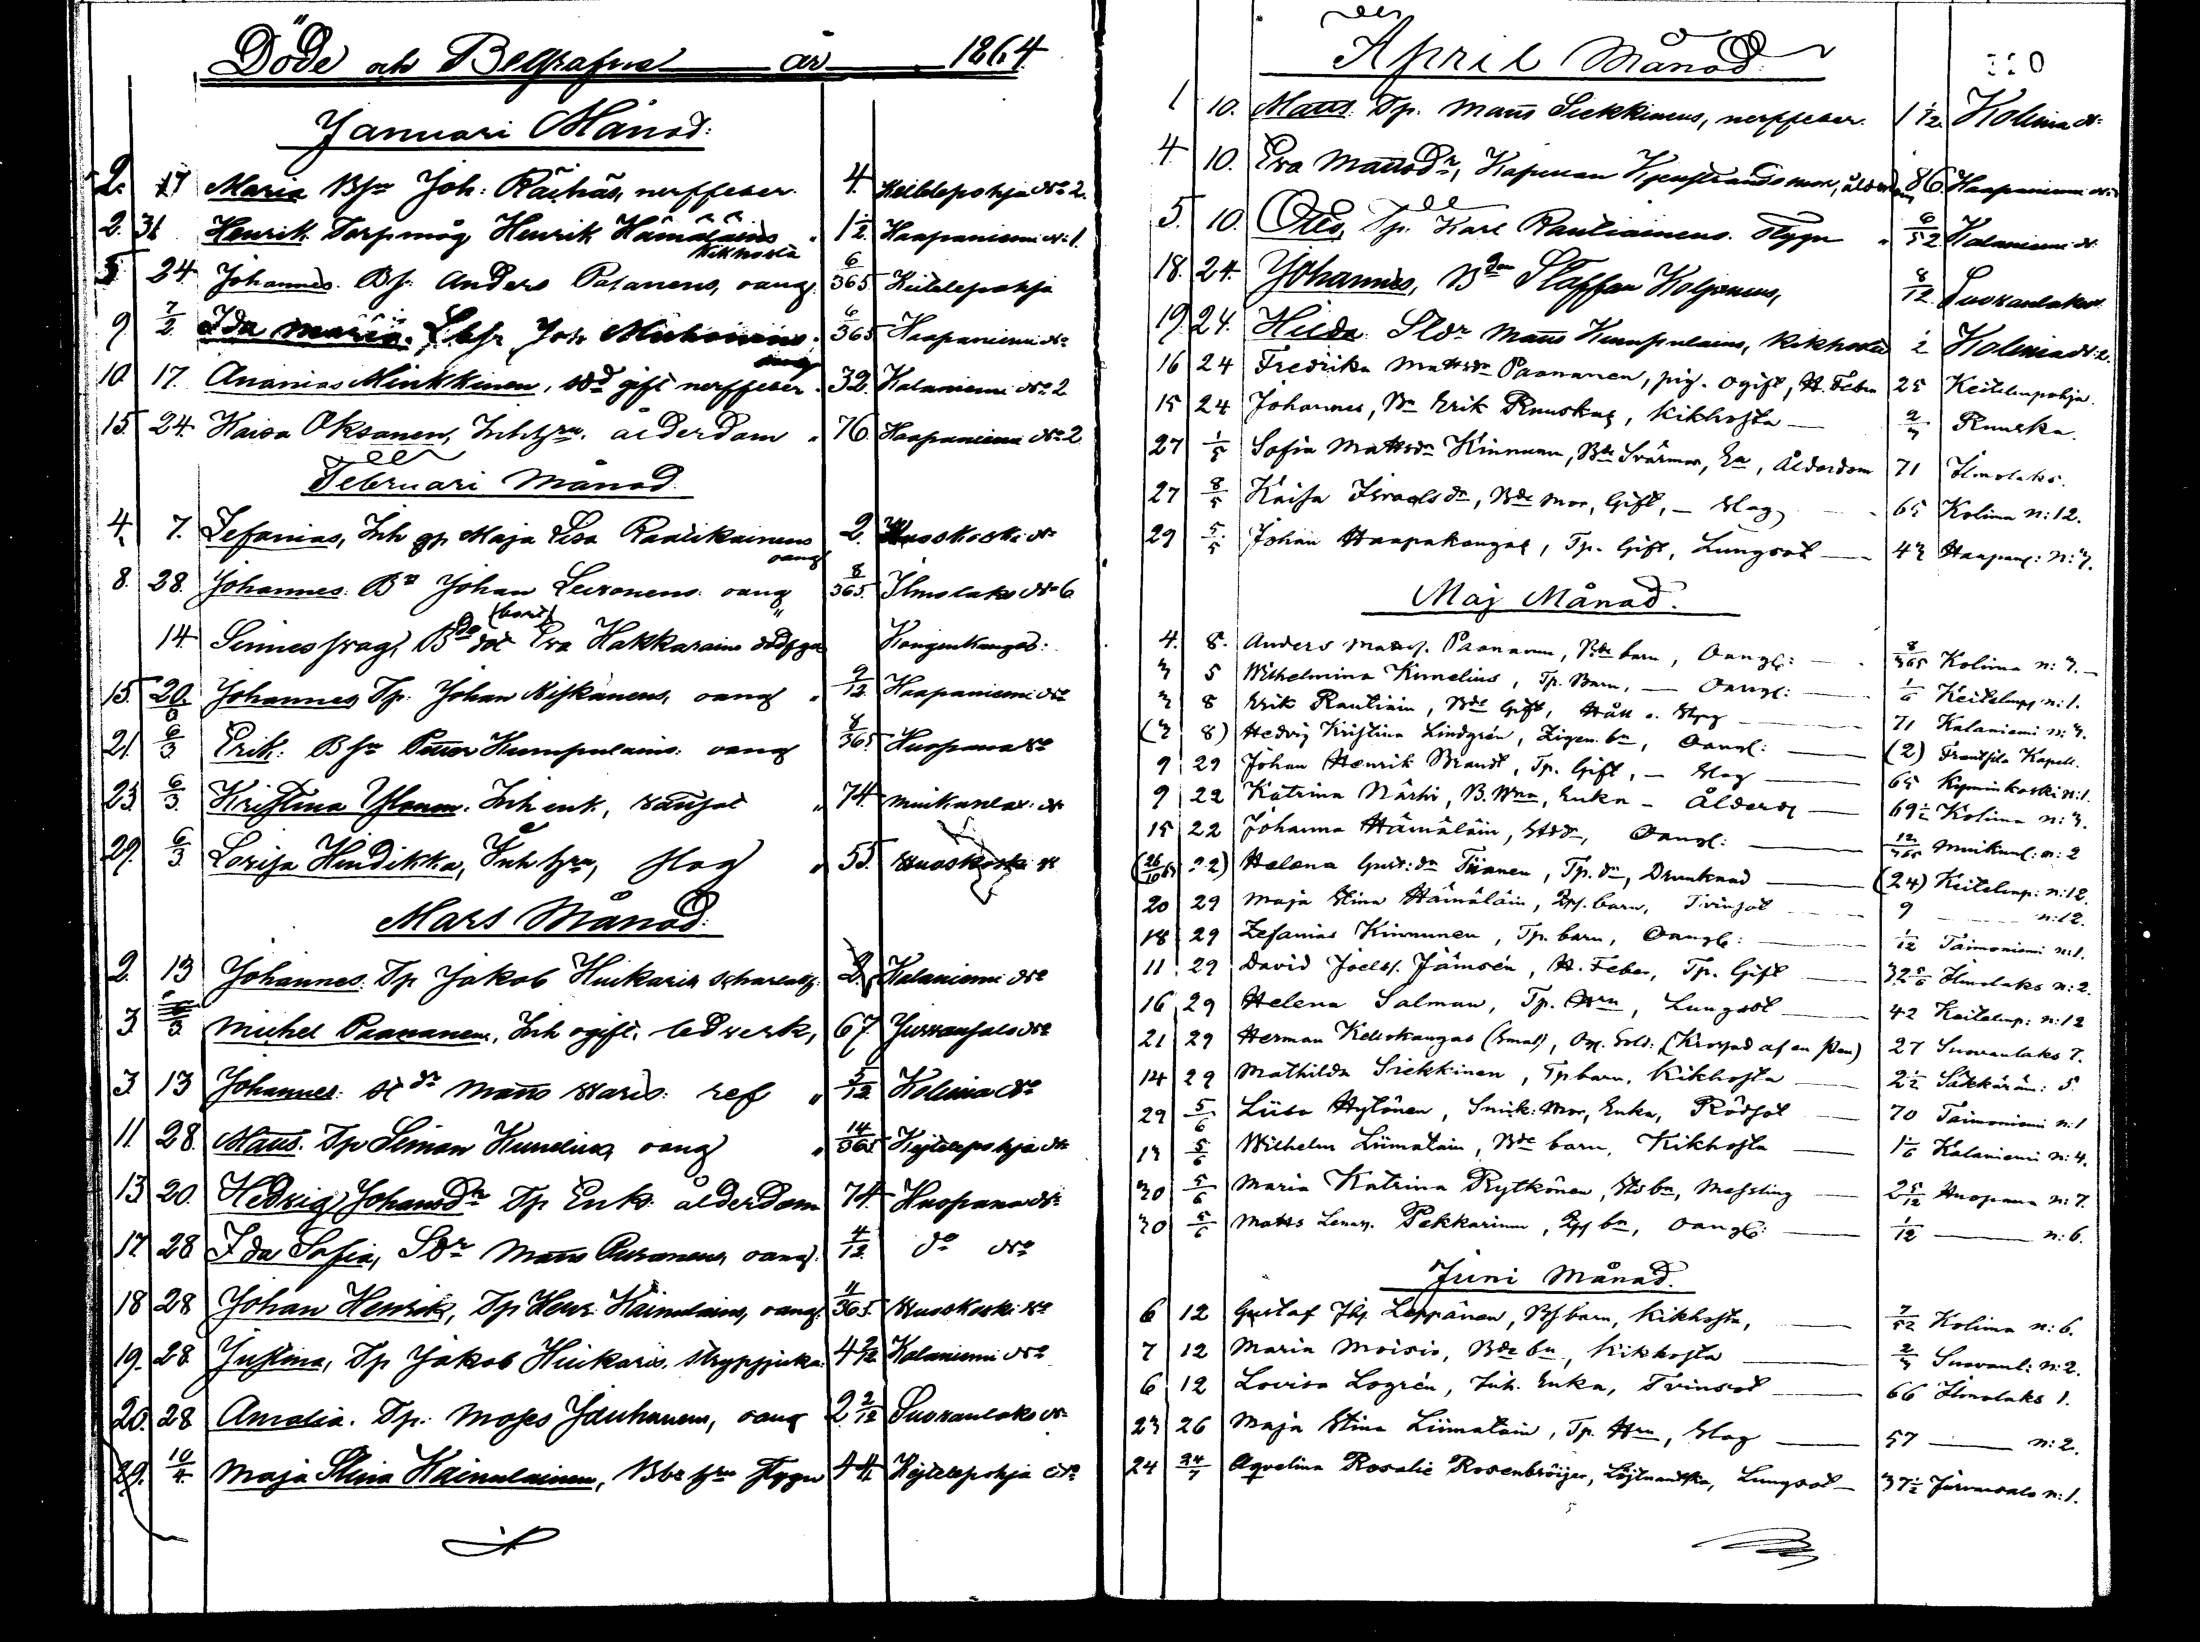 Döde och Begrafne år 1864
Januari Månad:
2. 17 Maria Bsr Joh: Räihäs, nerffeber. 4. Keitelepohja No 2.
2. 31 Henrik Torpmåg Henrik Hämäläins Kikhosta " 1 1/2 Haapaniemi No 1.
5 24 Johannes. Bs. Anders Patanens, oang. 6/365 Keitelepohja
9 7/2 Ida Maria. Joh. 6/365 Haapaniemi No
10. 17. Ananias Minkkinen, gift nerffeber. 32. Kalaniemi No 2
15. 24. Kaisa Oksanen, Inh ålderdom " 76 Haapaniemi No 2
Februari Månad
4. 7. Sefanias, Inh Maja Lisa Raatikainens oang 2. Huoskoski No
8. 28. Johannes. Bn Johan Leivonens oang 8/365. Ilmolaks No 6
14. (bord) Eva Hakkarains dödfödd Kongenkangas:
15. 20. Johannes Tp. Johan Niskanens, oang " 9/12 Haapaniemi No
21. 6/3 Erik: Bsr Petter Kumpulains: oang 8/365 Huopana No
23. 6/3. Kristina Ylönen. Inh enk, " 74. Muikunlax: No
29. 6/3 Lovisa Hindikka, Inh hru, slag " 55. Huoskoski No
Mars Månad:
2. 13 Johannes. Tp Jakob Hiekaris 2. Kalaniemi No
3 6/3 Michel Paananen, Inh ogift. ledverk, 67. Jurvansalo No
3. 13 Johannes. Matts ref " 5/12 Kolima No
11. 28. Matts. Tp Simon Kumelius, oang " 14/365 Kejtelepohja No
13 20. Hedvig Johansdr Tp Enk. ålderdom 74. Huopana No
17 28 Ida Sofia, Sdr Matts Puranens, oang. 4/12 do No
18 28 Johan Henrik, Tp Henr. Kainulains, oang. 4/365. Huoskoski No
19. 28. Justina, Tp Jakob Hiekaris. strypsjuka 4 2/12 Kalaniemi No
20. 28 Amalia. Tp. Moses Jauhianens, oang 2 2/12 Suovanlaks No
29. 10/4. Maja Stina Kainulainen, Bde hru Flygn 44. Kejtelepohja No
April Månad.
1 10. Matts. Tp. Matts Siekkinens, nerffeber. 1 1/2. Kolima No
4 10. Eva Mattsdr, Kapunan mor, ålderdom 86. Haapaniemi No
5. 10. Otto, Tp. Karl Rautiainens. Flygn " 6/52 Kalaniemi No
18. 24. Johannes, Bdn Staffan Koljonens, 8/12 Suovanlaks No
19. 24. Hilda. Sldr Matts Kumpulains, Kikhosta 1/2 Kolima No 2.
16 24 Fredrika Mattsdr Paananen, pig. ogift, N. Feber 25 Keitelempohja.
15 24 Johannes, Bn Erik Ruuskas, Kikhosta 2/3 Ruuska.
27 1/5 Sofia Mattsdr Kinnunen, Bde Svärmor, Ea, Ålderdom 71 Ilmolaks.
27 8/5 Kaisa Israelsdr, Bde mor, Gift, — Slag 65 Kolima n: 12.
29 5/5 Johan Haapakangas, Tp. Gift, Lungsot 43 Haapani: n: 3.
Maj Månad.
4. 8. Anders Matts. Paananen, Bde barn, Oangl: 8/365 Kolima n: 3.
3 5 Wilhelmina Kumelius, Tp. Barn, — Oangl: 1/6 Keitelemp n: 1.
3 8 Erik Rautiain, Bde Gift, Håll o. Styng 71 Kalaniemi n: 3.
(3 8) Hedvig Kristina Lindgrén, Zigen. bn, Oangl: (2) Frantsila Kapell.
9 29 Johan Henrik Brandt, Tp. Gift, — Slag 65 Kyminkoski n: 1.
9 22 Katrina Närhi, B. Wna, Enka — Ålderd 69 1/2 Kolima n: 3.
15 22 Johanna Hämäläin, Stdr, Oangl: 12/365 Muikunl: n: 2
(26/10 63 22) Helena Gust: dr Tiianen, Tp. dr, Drunknad (24) Keitelemp: n: 12.
20 29 Maja Stina Hämäläin, barn, Tvinsot 9 n: 12.
18 29 Zefanias Kinnunen, Tp. barn, Oangl: 1/12 Taimoniemi n: 1.
11 29 David Joels. Jämsén, N. Feber, Tp. Gift 32 5/6 Ilmolaks n: 2.
16 29 Helena Salman, Tp. Hru, Lungsot 42 Keitelemp: n: 12
21 29 Herman Kellokangas (Smal), Og. Sold: (Krossad af en sten) 27 Suovanlaks 7.
14 29 Mathilda Siekkinen, Tp barn, Kikhosta 2 1/2 Säkkärän: 5.
29 5/6 Liisa Hytönen, Smik: Mor, Enka, Rödsot 70 Taimoniemi n: 1
13 5/6 Wilhelm Liimatain, Bde barn, Kikhosta 1 1/6 Kalaniemi n: 4.
30 5/6 Maria Katrina Rytkönen, bn, Messling 2 5/12 Huopana n: 7.
30 5/6 Matts Pekkarinen, bn, oangl: 1/12 n: 6.
Juni Månad.
6 12 Gustaf Leppänen, Bs barn, Kikhosta, 7/52 Kolima n: 6.
7 12 Maria Moisio, Bde bn, Kikhosta 2/3 Suovanl: n: 2.
6 12 Lovisa Logrén, Inh. Enka, Tvinsot 66 Ilmolaks 1.
23 26 Maja Stina Liimatain, Tp. Hru, Slag 57 n: 2.
24 24/7 Aqvelina Rosalie Rosenbröijer, Löjtnantska, Lungsot 37 1/2 Jurvansalo n: 1.